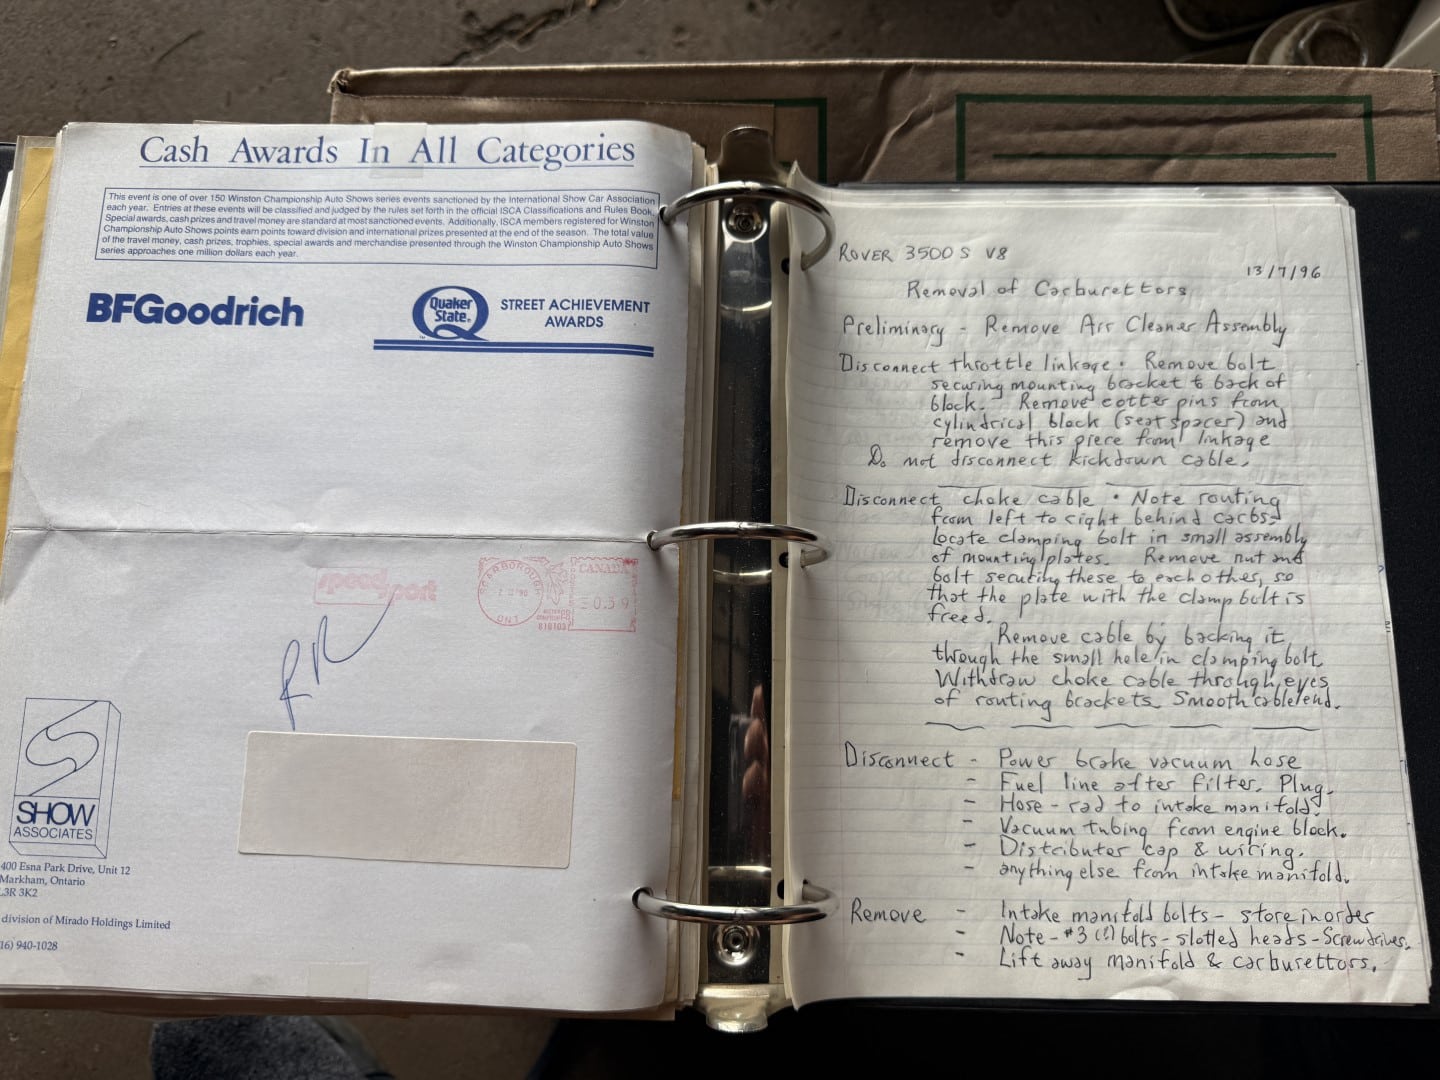 Cash Awards In All Categories
This event is one of over 150 Winston Championship Auto Shows series events sanctioned by the International Show Car Association
each year. Entries at these events will be classified and judged by the rules set forth in the official ISCA Classifications and Rules Book.
Special awards, cash prizes and travel money are standard at most sanctioned events. Additionally, ISCA members registered for Winston
Championship Auto Shows points earn points toward division and international prizes presented at the end of the season. The total value
of the travel money, cash prizes, trophies, special awards and merchandise presented through the Winston Championship Auto Shows
series approaches one million dollars each year.
BFGoodrich
Quaker
State®
STREET ACHIEVEMENT
AWARDS
speed sport
SCARBOROUGH
90
ONT
CANADA
0.39
818103
RR
SHOW
ASSOCIATES
400 Esna Park Drive, Unit 12
Markham, Ontario
L3R 3K2
division of Mirado Holdings Limited
16) 940-1028
ROVER 3500 S V8
13/7/96
Removal of Carburettors
Preliminary - Remove Air Cleaner Assembly
Disconnect throttle linkage. Remove bolt
securing mounting bracket to back of
block. Remove cotter pins from
cylindrical block (seat spacer) and
remove this piece from linkage
Do not disconnect kickdown cable.
Disconnect choke cable. Note routing
from left to right behind carbs.
Locate clamping bolt in small assembly
of mounting plates. Remove nut and
bolt securing these to each other, so
that the plate with the clamp bolt is
freed.
Remove cable by backing it
through the small hole in clamping bolt.
Withdraw choke cable through eyes
of routing brackets. Smooth cable end.
Disconnect - Power brake vacuum hose
- Fuel line after filter. Plug.
- Hose - rad to intake manifold.
- Vacuum tubing from engine block.
- Distributer cap & wiring.
- anything else from intake manifold.
Remove - Intake manifold bolts - store in order
- Note - #3 (?) bolts - slotted heads - Screwdriver.
- Lift away manifold & carburettors.